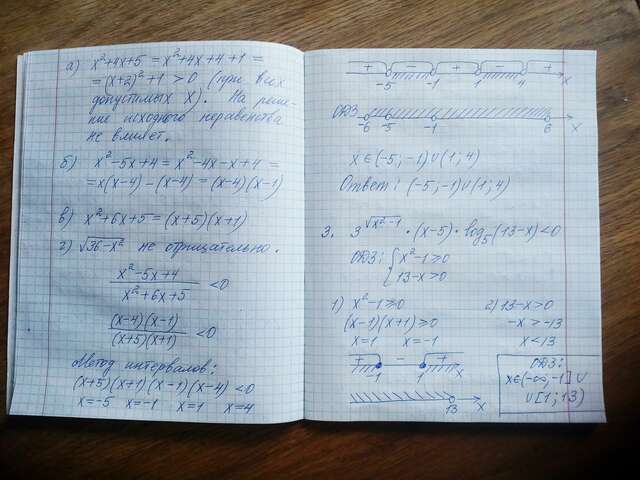 а) x²+4x+5 = x²+4x+4+1 =
= (x+2)²+1 > 0 (при всех
допустимых x). На реше-
ние исходного неравенства
не влияет.
б) x²-5x+4 = x²-4x-x+4 =
= x(x-4) - (x-4) = (x-4)(x-1)
в) x²+6x+5 = (x+5)(x+1)
г) √36-x² не отрицательно.
x²-5x+4
x²+6x+5 <0
(x-4)(x-1)
(x+5)(x+1) <0
Метод интервалов:
(x+5)(x+1)(x-1)(x-4) <0
x=-5 x=-1 x=1 x=4
+ - + - +
-5 -1 1 4 x
ОДЗ
-6 -5 -1 6 x
x∈(-5;-1)∪(1;4)
Ответ: (-5;-1)∪(1;4)
3. 3^√x²-1 · (x-5) · log₅(13-x) <0
ОДЗ: { x²-1≥0
13-x>0
1) x²-1≥0 2) 13-x>0
(x-1)(x+1)≥0 -x > -13
x=1 x=-1 x<13
+ - +
-1 1 x
13 x
ОДЗ:
x∈(-∞;-1]∪
∪[1;13)